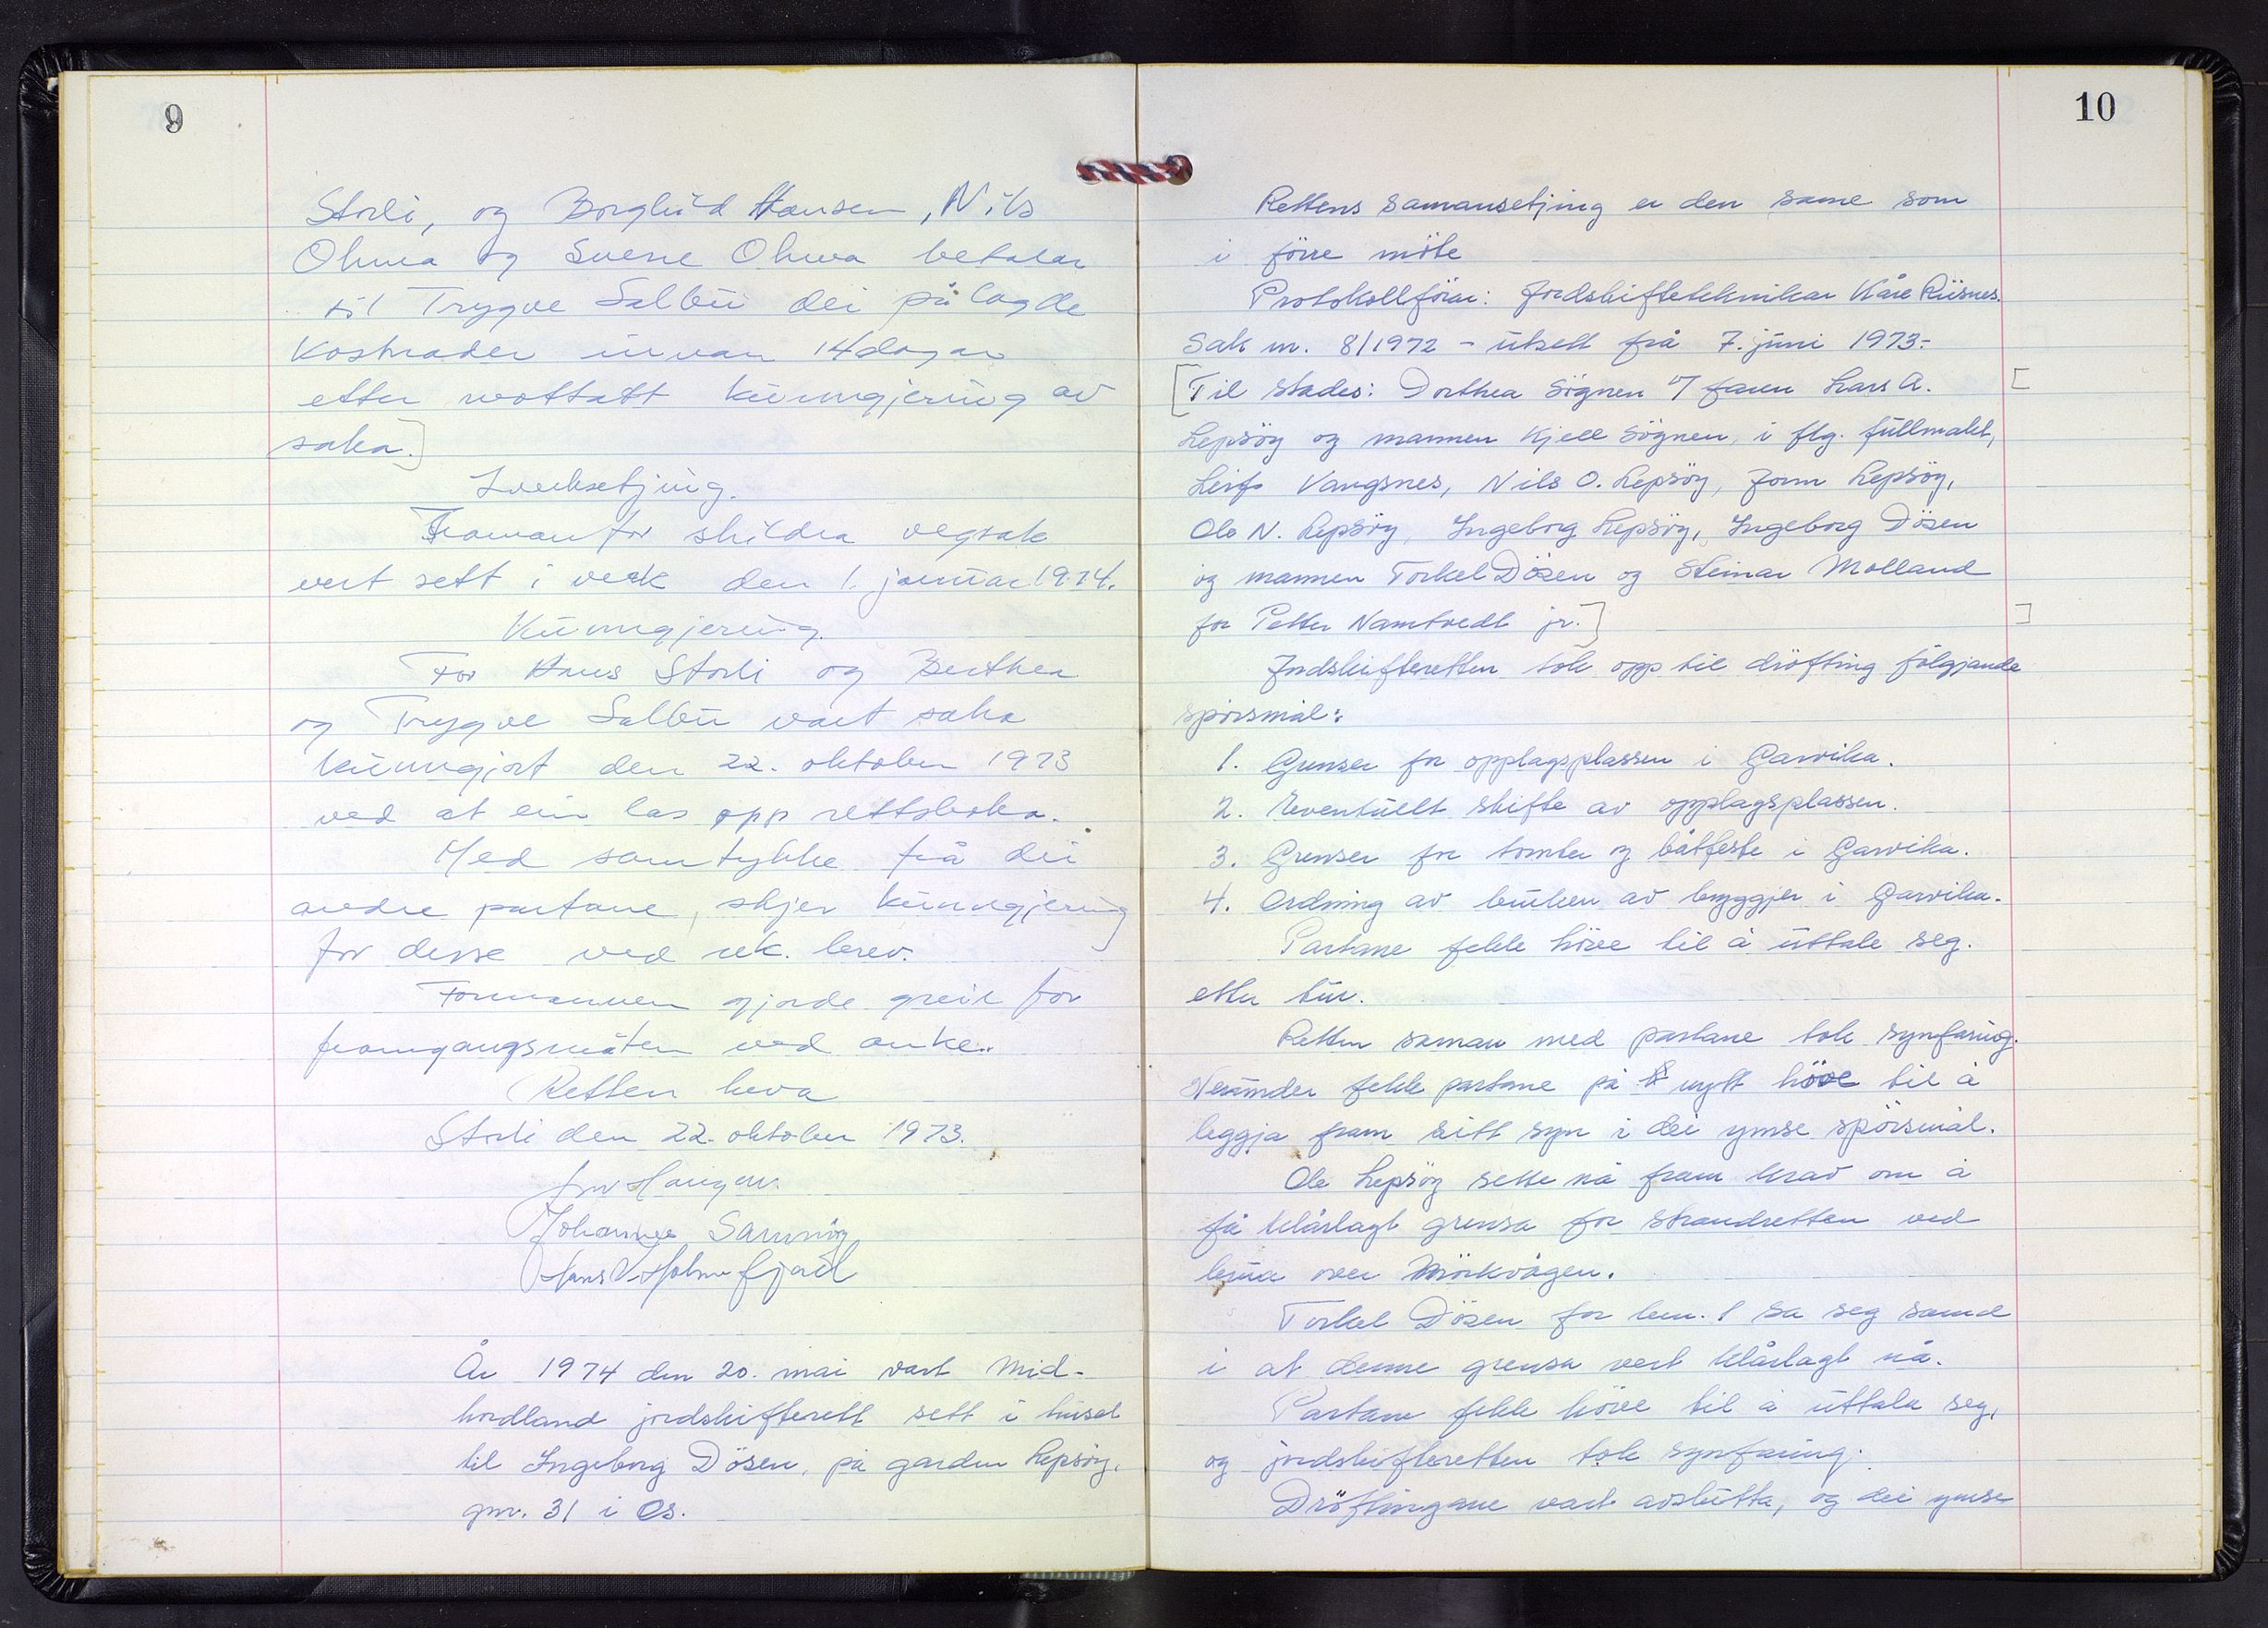 9
Storli, og Borghild Hansen, Nils
Oluva og Sverre Oluva betalar
til Trygve Salbu dei pålagde
Kostnader innan 14 dagar
etter mottatt kunngjering av
saka.]
Iverksetjing.
Framanfor skildra vegsak
vert sett i verk den 1. januar 1974.
Kunngjering.
For Hans Storli og Berthea
og Trygve Salbu vart saka
kunngjort den 22. oktober 1973
ved at ein las opp rettsboka.
Med samtykke frå dei
andre partane, skjer kunngjering
for desse ved rek. brev.]
Formannen gjorde greie for
framgangsmåten ved anke.
Retten heva
Storli den 22. oktober 1973.
Johannes Samnøy
Hans V. Holmefjord
År 1974 den 20. mai vart Mid-
hordland jordskifterett sett i huset
til Ingeborg Dösen, på garden Lepsöy,
gnr. 31 i Os.
10
Rettens samansetjing er den same som
i förre möte
Protokollförar: Jordskifteteknikar Kåre Riisnes.
Sak nr. 8/1972 - utsett frå 7. juni 1973.-
[Til stades: Dorthea Sögnen v/ faren Lars A. [
Lepsöy og mannen Kjell Sögnen, i flg. fullmakt,
Leif Vangsnes, Nils O. Lepsöy, Jorm Lepsöy,
Ole N. Lepsöy, Ingeborg Lepsöy, Ingeborg Dösen
og mannen Torkel Dösen og Steinar Molland
for Petter Namtvedt jr.] ]
Jordskifteretten tok opp til dröfting fölgjande
spörsmål:
1. Grenser for opplagsplassen i Garvika.
2. Eventuellt skifte av opplagsplassen.
3. Grenser for tomter og båtfeste i Garvika.
4. Ordning av bruken av bryggjer i Garvika.
Partane fekk höve til å uttale seg.
etter tur.
Retten saman med partane tok synfaring.
Herunder fekk partane på nytt höve til å
leggja fram sitt syn i dei ymse spörsmål.
Ole Lepsöy sette nå fram krav om å
få klårlagt grensa for strandretten ved
brua over Mörkvågen.
Torkel Dösen for bnr. 1 sa seg samd
i at denne grensa vert klårlagt nå.
Partane fekk höve til å uttala seg,
og jordskifteretten tok synfaring.
Dröftingane vart avslutta, og dei ymse